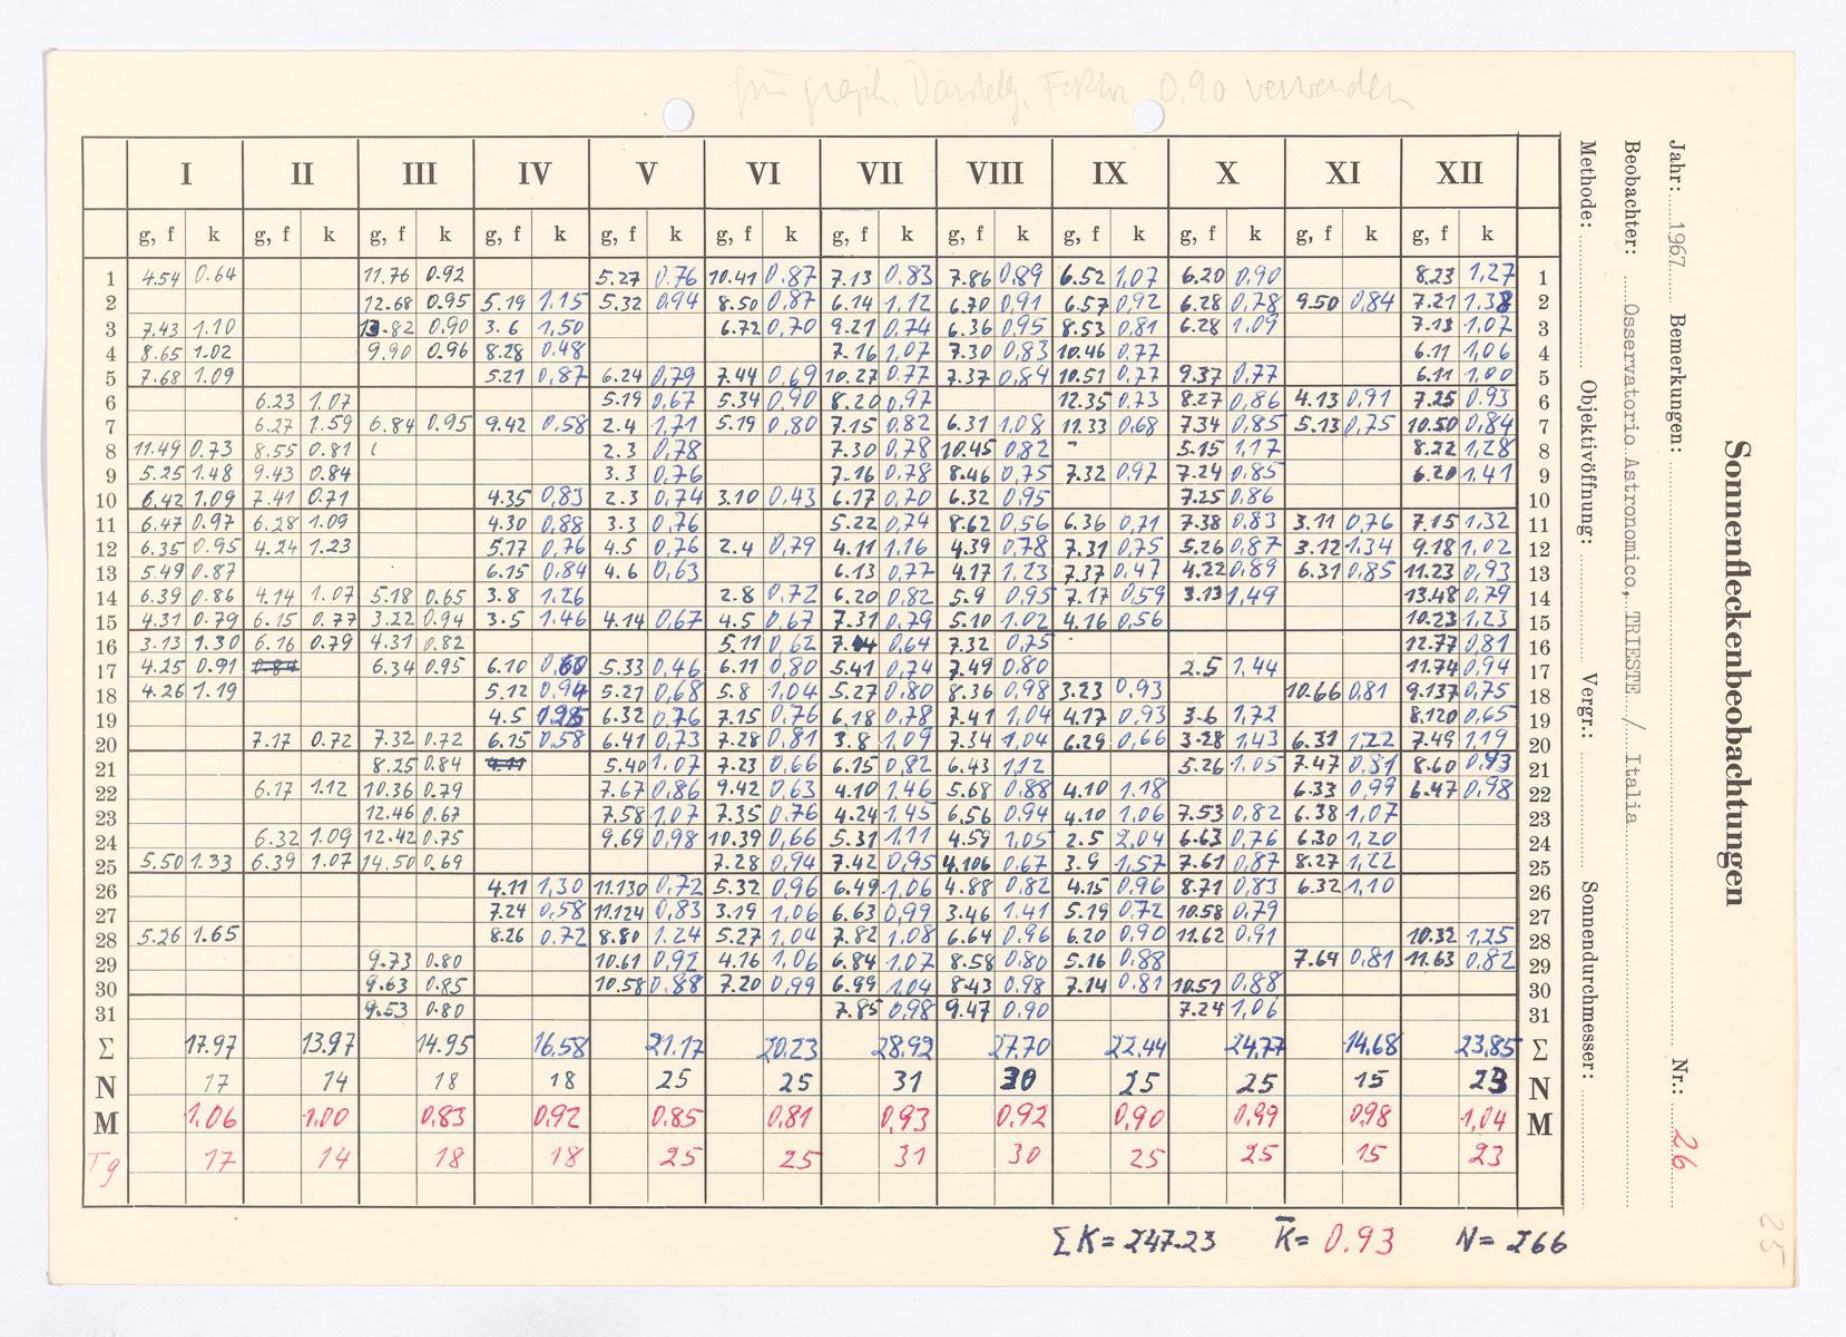 für graph. Darstellg. Faktor 0,90 verwenden
I II III IV V VI VII VIII IX X XI XII
g, f k g, f k g, f k g, f k g, f k g, f k g, f k g, f k g, f k g, f k g, f k g, f k
1 4.54 0.64 11.76 0.92 5.27 0,76 10.41 0,87 7.13 0,83 7.86 0,89 6.52 1,07 6.20 0,90 8.23 1,27 1
2 12.68 0.95 5.19 1.15 5.32 0,94 8.50 0,87 6.14 1,12 6.70 0,91 6.57 0,92 6.28 0,78 9.50 0,84 7.21 1.38 2
3 7.43 1.10 13.82 0.90 3.6 1,50 6.72 0,70 9.21 0,74 6.36 0,95 8.53 0,81 6.28 1,09 7.13 1,07 3
4 8.65 1.02 9.90 0.96 8.28 0.48 7.16 1,07 7.30 0,83 10.46 0,77 6.11 1,06 4
5 7.68 1.09 5.21 0,87 6.24 0,79 7.44 0,69 10.27 0,77 7.37 0,84 10.51 0,77 9.37 0,77 6.11 1,00 5
6 6.23 1.07 5.19 0,67 5.34 0,90 8.20 0,97 12.35 0,73 8.27 0,86 4.13 0,91 7.25 0.93 6
7 6.27 1.59 6.84 0.95 9.42 0,58 2.4 1,71 5.19 0,80 7.15 0,82 6.31 1,08 11.33 0,68 7.34 0,85 5.13 0,75 10.50 0,84 7
8 11.49 0.73 8.55 0.81 2.3 0,78 7.30 0,78 10.45 0,82 5.15 1,17 8.22 1,28 8
9 5.25 1.48 9.43 0.84 3.3 0,76 7.16 0,78 8.46 0,75 7.32 0,97 7.24 0,85 6.20 1.41 9
10 6.42 1.09 7.41 0.71 4.35 0,83 2.3 0,74 3.10 0,43 6.17 0,70 6.32 0,95 7.25 0,86 10
11 6.47 0.97 6.28 1.09 4.30 0,88 3.3 0,76 5.22 0,74 8.62 0,56 6.36 0,71 7.38 0,83 3.11 0,76 7.15 1,32 11
12 6.35 0.95 4.24 1.23 5.17 0,76 4.5 0,76 2.4 0,79 4.11 1,16 4.39 0,78 7.31 0,75 5.26 0,87 3.12 1.34 9.18 1,02 12
13 5.49 0.87 6.15 0,84 4.6 0,63 6.13 0,77 4.17 1.23 7.37 0,47 4.22 0,89 6.31 0,85 11.23 0,93 13
14 6.39 0.86 4.14 1.07 5.18 0.65 3.8 1.26 2.8 0,72 6.20 0,82 5.9 0,95 7.17 0,59 3.13 1,49 13.48 0,79 14
15 4.31 0.79 6.15 0.77 3.22 0.94 3.5 1.46 4.14 0,67 4.5 0,67 7.31 0,79 5.10 1.02 4.16 0,56 10.23 1,23 15
16 3.13 1.30 6.16 0.79 4.31 0.82 5.11 0,62 0,64 7.32 0,75 12.77 0,81 16
17 4.25 0.91 0.84 6.34 0.95 6.10 0,60 5.33 0,46 6.11 0,80 5.41 0,74 7.49 0,80 2.5 1,44 11.74 0,94 17
18 4.26 1.19 5.12 0,94 5.21 0,68 5.8 1,04 5.27 0,80 8.36 0,98 3.23 0,93 10.66 0,81 9.137 0,75 18
19 4.5 6.32 0,76 7.15 0,76 6,18 0,78 7.41 1,04 4.17 0,93 3.6 1,72 8.120 0,65 19
20 7.17 0.72 7.32 0.72 6.15 0,58 6.41 0,73 7.28 0,81 3.8 1,09 7.34 1,04 6.29 0,66 3.28 1,43 6.31 1,22 7.49 1,19 20
21 8.25 0.84 4.11 5.40 1.07 7.23 0,66 6.15 0,82 6.43 1,12 5.26 1,05 7.47 0,81 8.60 0.93 21
22 6.17 1.12 10.36 0.79 7.67 0,86 9.42 0,63 4.10 1,46 5.68 0,88 4.10 1,18 6.33 0,99 6.47 0,98 22
23 12.46 0.67 7.58 1,07 7.35 0,76 4.24 1.45 6,56 0,94 4.10 1,06 7.53 0,82 6.38 1,07 23
24 6.32 1.09 12.42 0.75 9.69 0,98 10.39 0,66 5.31 1.11 4.59 1,05 2.5 2,04 6.63 0,76 6.30 1,20 24
25 5.50 1.33 6.39 1.07 14.50 0.69 7.28 0,94 7.42 0,95 4.106 0.67 3.9 1,57 7.61 0,87 8.27 1,22 25
26 4.11 1,30 11.130 0,72 5.32 0,96 6.49 1,06 4.88 0,82 4.15 0,96 8.71 0,83 6.32 1,10 26
27 7.24 0,58 11.124 0,83 3.19 1,06 6.63 0,99 3.46 1.41 5.19 0.72 10.58 0,79 27
28 5.26 1.65 8.26 0.72 8.80 1.24 5.27 1,04 7.82 1,08 6.64 0,96 6.20 0,90 11.62 0,91 10.32 1,25 28
29 9.73 0.80 10.61 0,92 4.16 1,06 6.84 1,07 8.58 0.80 5.16 0.88 7.64 0,81 11.63 0,82 29
30 9.63 0.85 10.58 0.88 7.20 0,99 6.99 1,04 8.43 0.98 7.14 0.81 10.51 0,88 30
31 9.53 0.80 7.85 0,98 9.47 0.90 7.24 1,06 31
Σ 17.97 13.97 14.95 16.58 21.17 20.23 28.92 27.70 22.44 24,77 14,68 23,85 Σ
N 17 14 18 18 25 25 31 30 25 25 15 23 N
M 1.06 1.00 0,83 0,92 0.85 0,81 0,93 0,92 0,90 0,99 0,98 1,04 M
Tg 17 14 18 18 25 25 31 30 25 25 15 23
ΣK = 247.23 K̅ = 0.93 N = 266
Sonnenfleckenbeobachtungen
Jahr: 1967 Bemerkungen: Nr.: 26
Beobachter: Osservatorio Astronomico, TRIESTE / Italia
Methode: Objektivöffnung: Vergr.: Sonnendurchmesser:
25